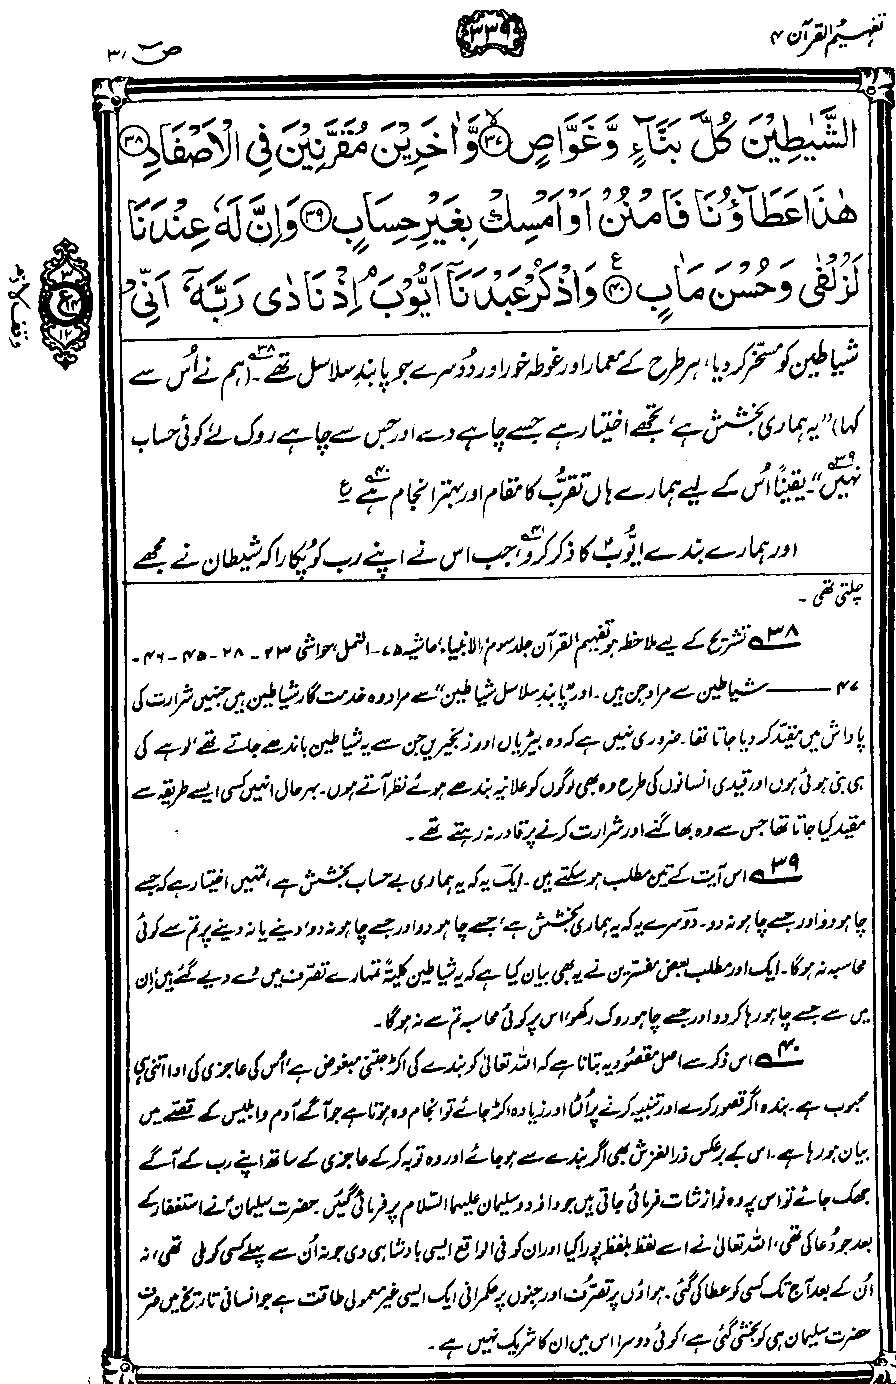 تفہیم القرآن ۴
۳۳۹
ص ۳۸
الشَّيٰطِيْنَ كُلَّ بَنَّآءٍ وَّغَوَّاصٍ ﴿۳۷﴾ وَّاٰخَرِيْنَ مُقَرَّنِيْنَ فِي الْاَصْفَادِ ﴿۳۸﴾
هٰذَا عَطَآؤُنَا فَامْنُنْ اَوْ اَمْسِكْ بِغَيْرِ حِسَابٍ ﴿۳۹﴾ وَاِنَّ لَهٗ عِنْدَنَا
لَزُلْفٰى وَحُسْنَ مَاٰبٍ ﴿۴۰﴾ ع وَاذْكُرْ عَبْدَنَآ اَيُّوْبَ ۘ اِذْ نَادٰى رَبَّهٗٓ اَنِّيْ
شیاطین کو مسخّر کر دیا، ہر طرح کے معمار اور غوطہ خور اور دُوسرے جو پابندِ سلاسل تھے۳۸۔ (ہم نے اُس سے
کہا) ”یہ ہماری بخشش ہے، تجھے اختیار ہے جسے چاہے دے اور جس سے چاہے روک لے، کوئی حساب
نہیں“۳۹۔ یقیناً اُس کے لیے ہمارے ہاں تقرّب کا مقام اور بہتر انجام ہے۴۰ ع
اور ہمارے بندے ایّوبؑ کا ذکر کرو۴۱، جب اس نے اپنے رب کو پُکارا کہ شیطان نے مجھے
چلتی تھی۔
۳۸ تشریح کے لیے ملاحظہ ہو تفہیم القرآن جلد سوم، الانبیاء، حاشیہ ۷۵۔ النمل، حواشی ۲۳ - ۲۸ - ۴۵ - ۴۶ -
۴۷ ——— شیاطین سے مراد جن ہیں۔ اور ”پابندِ سلاسل شیاطین“ سے مراد وہ خدمت گار شیاطین ہیں جنہیں شرارت کی
پاداش میں مقیّد کر دیا جاتا تھا۔ ضروری نہیں ہے کہ وہ بیڑیاں اور زنجیریں جن سے یہ شیاطین باندھے جاتے تھے، لوہے کی
ہی بنی ہوئی ہوں اور قیدی انسانوں کی طرح وہ بھی لوگوں کو علانیہ بندھے ہوئے نظر آتے ہوں۔ بہرحال انہیں کسی ایسے طریقہ سے
مقید کیا جاتا تھا جس سے وہ بھاگنے اور شرارت کرنے پر قادر نہ رہتے تھے۔
۳۹ اس آیت کے تین مطلب ہو سکتے ہیں۔ ایک یہ کہ یہ ہماری بے حساب بخشش ہے، تمہیں اختیار ہے کہ جسے
چاہو دو اور جسے چاہو نہ دو۔ دوسرے یہ کہ یہ ہماری بخشش ہے، جسے چاہو دو اور جسے چاہو نہ دو، دینے یا نہ دینے پر تم سے کوئی
محاسبہ نہ ہوگا۔ ایک اور مطلب بعض مفسّرین نے یہ بھی بیان کیا ہے کہ یہ شیاطین کلیتہً تمہارے تصرّف میں دے دیے گئے ہیں، اِن
میں سے جسے چاہو رہا کر دو اور جسے چاہو روک رکھو، اس پر کوئی محاسبہ تم سے نہ ہوگا۔
۴۰ اس ذکر سے اصل مقصُود یہ بتانا ہے کہ اللہ تعالیٰ کو بندے کی اکڑ جتنی مبغوض ہے، اُس کی عاجزی کی ادا اتنی ہی
محبوب ہے۔ بندہ اگر قصور کرے اور تنبیہ کرنے پر اُلٹا اور زیادہ اکڑ جائے تو انجام وہ ہوتا ہے جو آگے آدم و ابلیس کے قصّے میں
بیان ہو رہا ہے۔ اس کے برعکس ذرا لغزش بھی اگر بندے سے ہو جائے اور وہ توبہ کر کے عاجزی کے ساتھ اپنے رب کے آگے
جھک جائے تو اس پر وہ نوازشات فرمائی جاتی ہیں جو داؤد و سلیمان علیہما السّلام پر فرمائی گئیں۔ حضرت سلیمانؑ نے استغفار کے
بعد جو دُعا کی تھی، اللہ تعالیٰ نے اسے لفظ بلفظ پورا کیا اور ان کو فی الواقع ایسی بادشاہی دی جو نہ اُن سے پہلے کسی کو ملی تھی، نہ
اُن کے بعد آج تک کسی کو عطا کی گئی۔ ہواؤں پر تصرّف اور جنوں پر حکمرانی ایک ایسی غیر معمولی طاقت ہے جو انسانی تاریخ میں صرف
حضرت سلیمان ہی کو بخشی گئی ہے، کوئی دوسرا اس میں ان کا شریک نہیں ہے۔